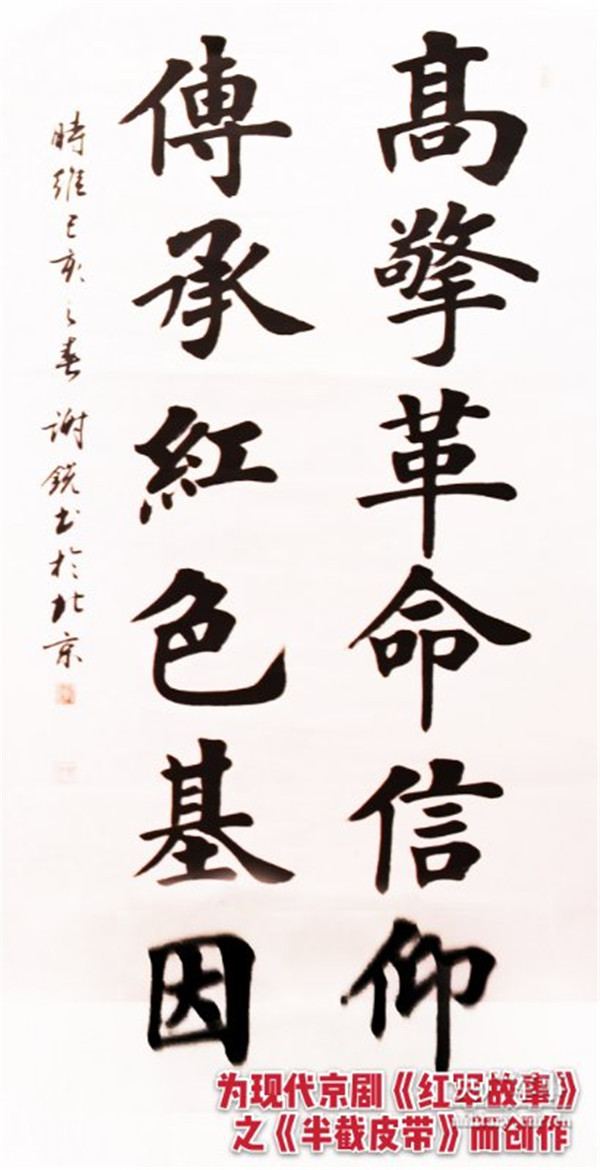 高擎革命信仰
傳承紅色基因
時維己亥之春 谢锐书於北京
为现代京剧《红军故事》
之《半截皮带》而创作